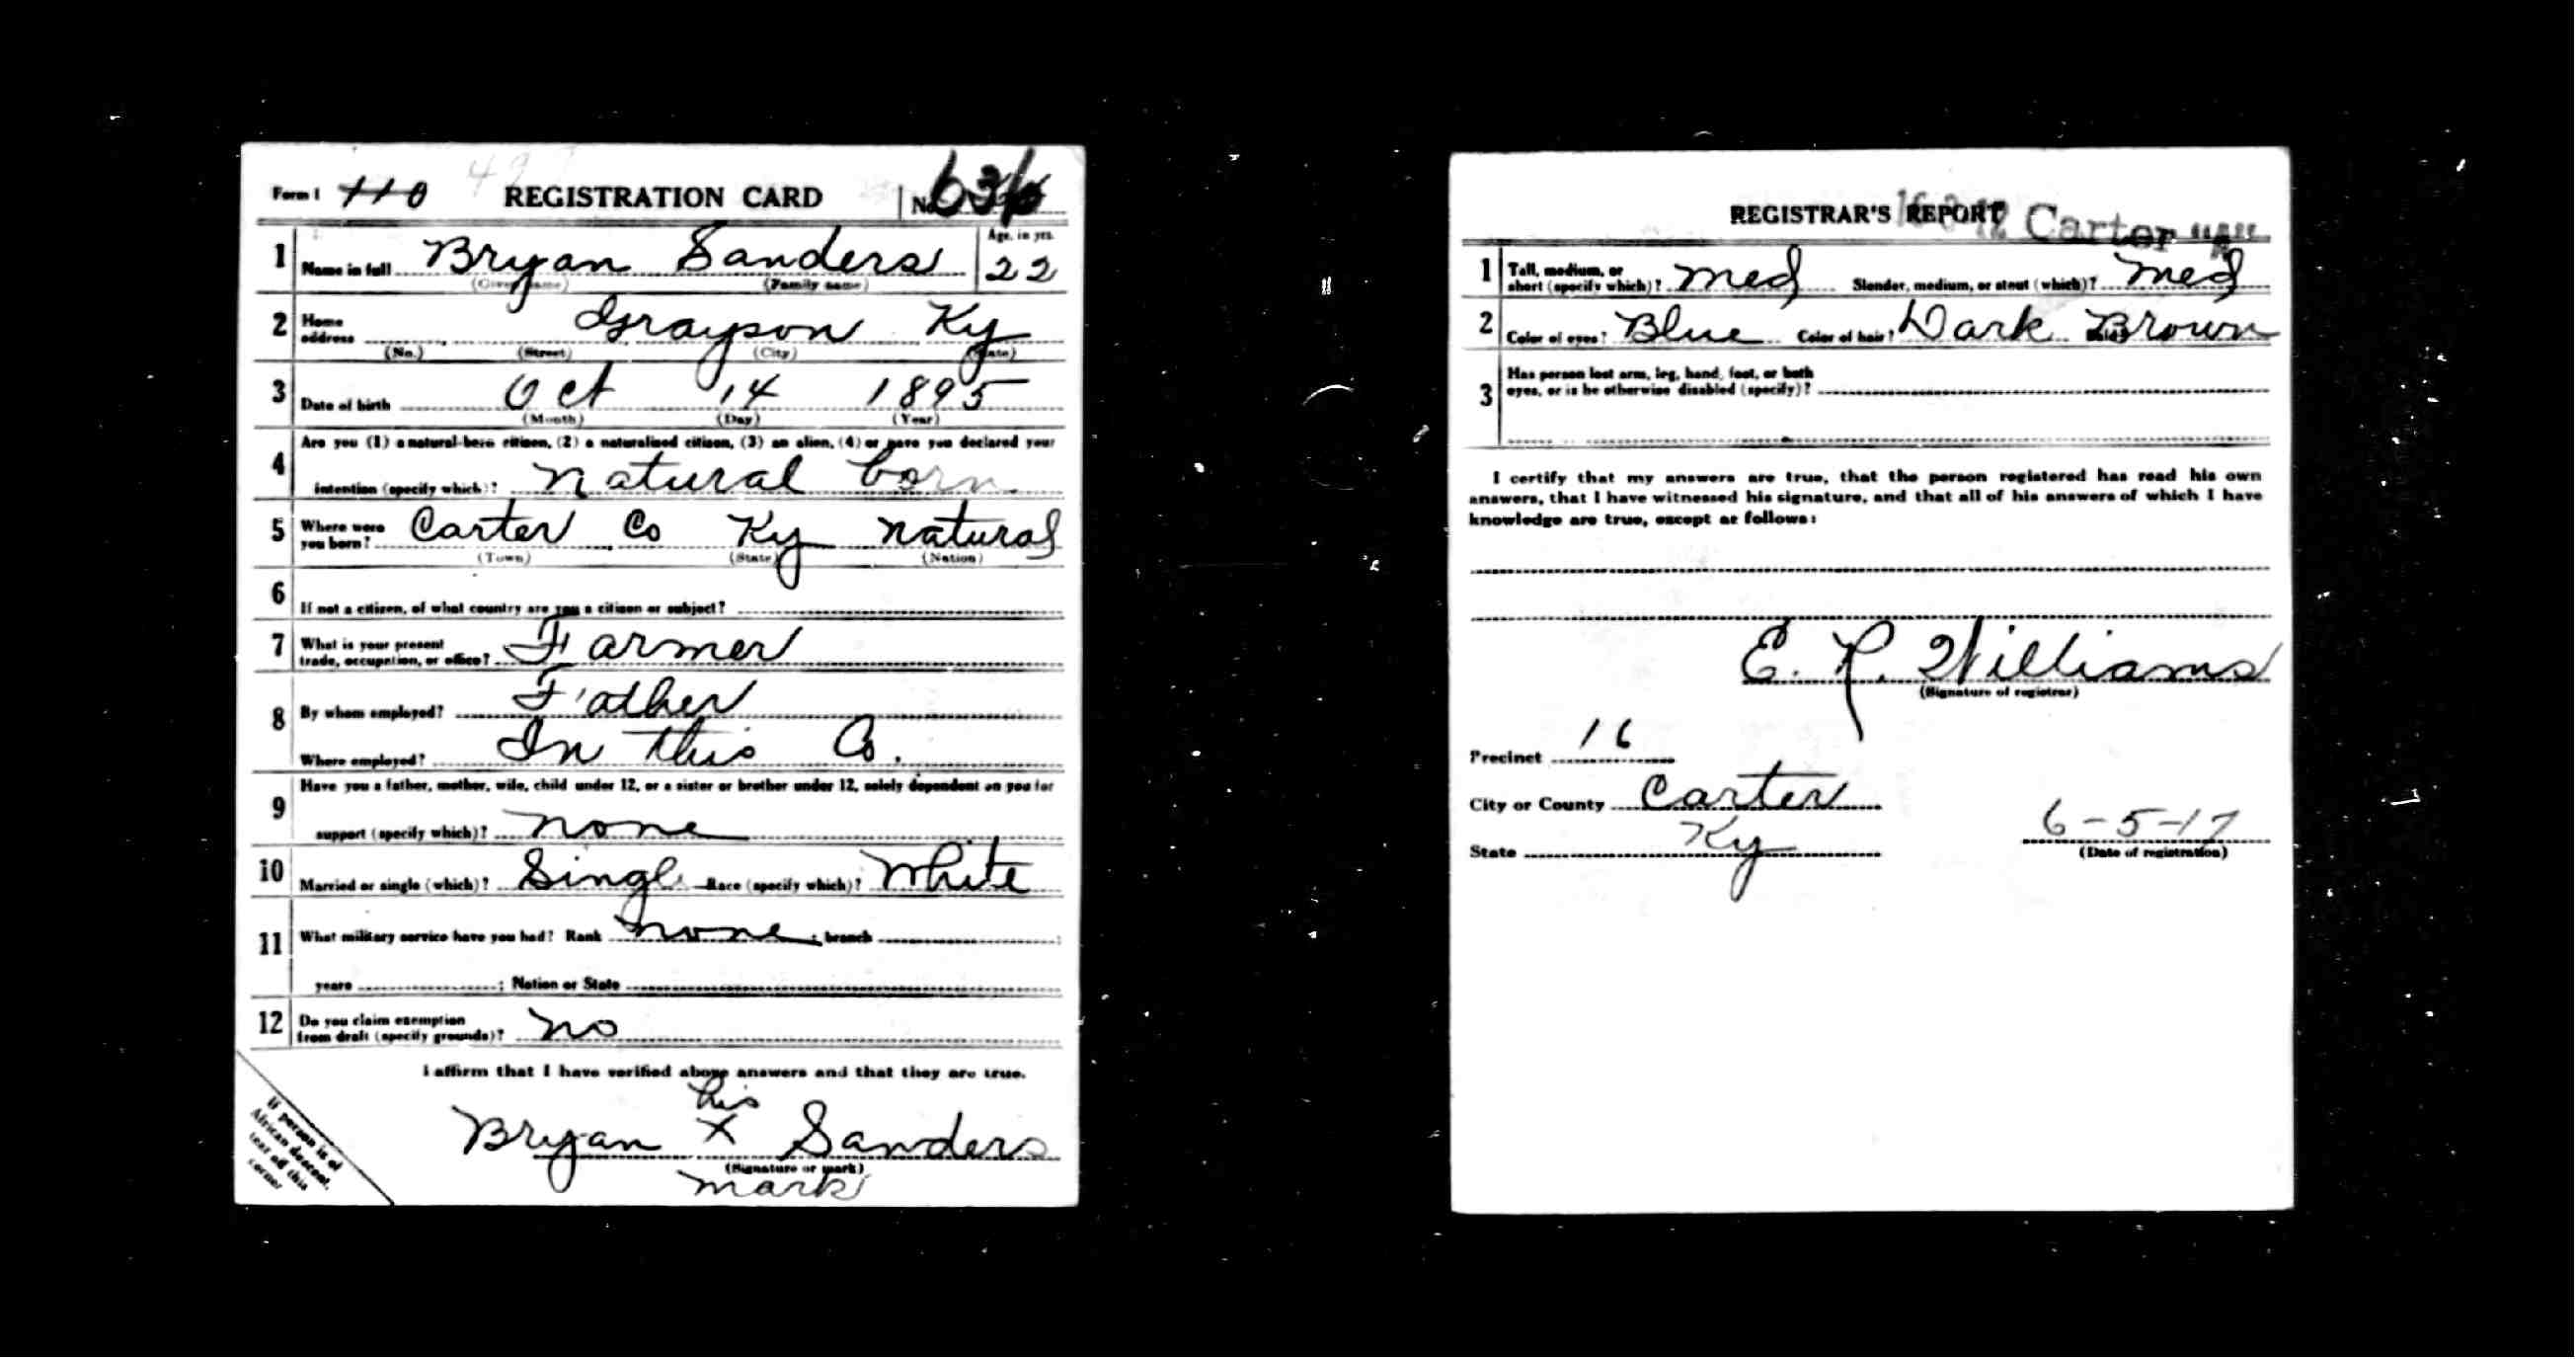 Form 1 110 REGISTRATION CARD No. 636
1 Name in full Bryan Sanders Age, in yrs. 22
(Given name) (Family name)
2 Home address Grayson Ky
(No.) (Street) (City) (State)
3 Date of birth Oct 14 1895
(Month) (Day) (Year)
4 Are you (1) a natural-born citizen, (2) a naturalized citizen, (3) an alien, (4) or have you declared your
intention (specify which)? Natural born
5 Where were you born? Carter Co Ky Natural
(Town) (State) (Nation)
6 If not a citizen, of what country are you a citizen or subject?
7 What is your present trade, occupation, or office? Farmer
8 By whom employed? Father
Where employed? In this Co.
9 Have you a father, mother, wife, child under 12, or a sister or brother under 12, solely dependent on you for
support (specify which)? None
10 Married or single (which)? Singl Race (specify which)? White
11 What military service have you had? Rank None ; branch ;
years ; Nation or State
12 Do you claim exemption from draft (specify grounds)? No
I affirm that I have verified above answers and that they are true.
his
Bryan X Sanders
(Signature or mark)
mark
If person is of
African descent,
tear off this
corner
REGISTRAR'S REPORT Carter
1 Tall, medium, or short (specify which)? Med Slender, medium, or stout (which)? Med
2 Color of eyes? Blue Color of hair? Dark Brown
3 Has person lost arm, leg, hand, foot, or both
eyes, or is he otherwise disabled (specify)?
I certify that my answers are true, that the person registered has read his own
answers, that I have witnessed his signature, and that all of his answers of which I have
knowledge are true, except as follows:
E. R. Williams
(Signature of registrar)
Precinct 16
City or County Carter
State Ky
6-5-17
(Date of registration)